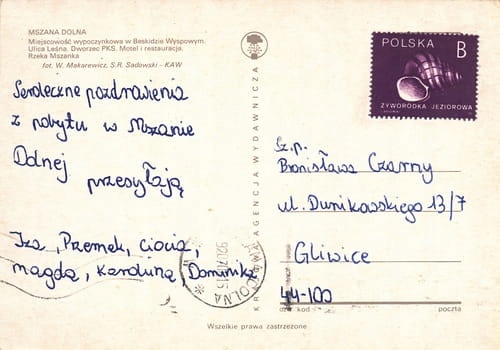 MSZANA DOLNA
Miejscowość wypoczynkowa w Beskidzie Wyspowym.
Ulica Leśna. Dworzec PKS. Motel i restauracja.
Rzeka Mszanka
fot. W. Makarewicz, S.R. Sadowski - KAW
Serdeczne pozdrowienia
z pobytu w Mszanie
Dolnej
przesyłają
Iza, Przemek, ciocia,
Magda, Karolina, Dominika
KRAJOWA AGENCJA WYDAWNICZA
POLSKA B
ŻYWORODKA JEZIOROWA
Sz.p.
Bronisława Czarny
ul. Dunikowskiego 13/7
Gliwice
44-100
kod
poczta
DOLNA
Wszelkie prawa zastrzeżone